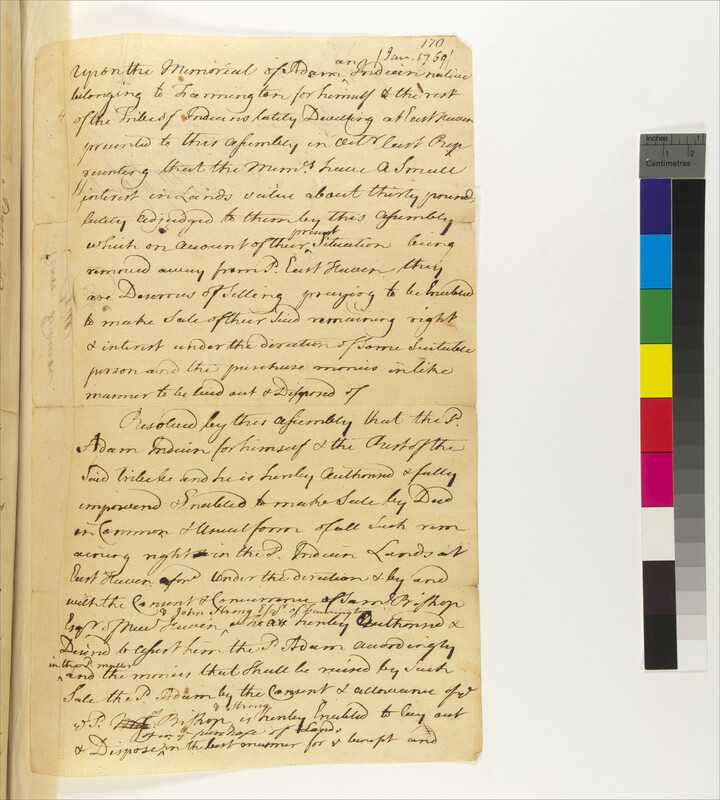 170
(Jan. 1769)
Upon the Memorial of Adam an Indian native
belonging to Farmington for himself & the rest
of the Tribe of Indians lately Dwelling at East Haven
presented to this assembly in Octr last Rep
resenting that the Memts have a Small
interest in Lands value about thirty pound
lately adjudged to them by this assembly
which on account of their present Situation being
removed away from sd. East Haven they
are Desirous of Selling praying to be Enabled
to make Sale of their Said remaining right
& interest under the direction of Some Suitable
person and the purchase monies in like
manner to be laid out & Disposd of
Resolved by this assembly that the sd.
Adam Indian for himself & the Rest of the
Said tribe be and he is hereby Authorisd & fully
impowered & Enabled to make Sale by Deed
in Common & Usual form of all Such rem
aining right in the sd. Indian Lands at
East Haven aforsd Under the direction & by and
with the Consent & Concurrence of Saml Bishop
& John Strong Esqr of Farmington
Esqr of New Haven who are hereby Authorisd &
Desired to assist him the sd. Adam accordingly
in the sd matter
and the monies that Shall be raised by Such
Sale the sd. Adam by the Consent & allowance of ye
& Strong
sd. Bishop is hereby Enabled to lay out
in ye purchase of Lands
& Dispose in the best manner for ye benefit and
Inches
1
1
2
Centimetres